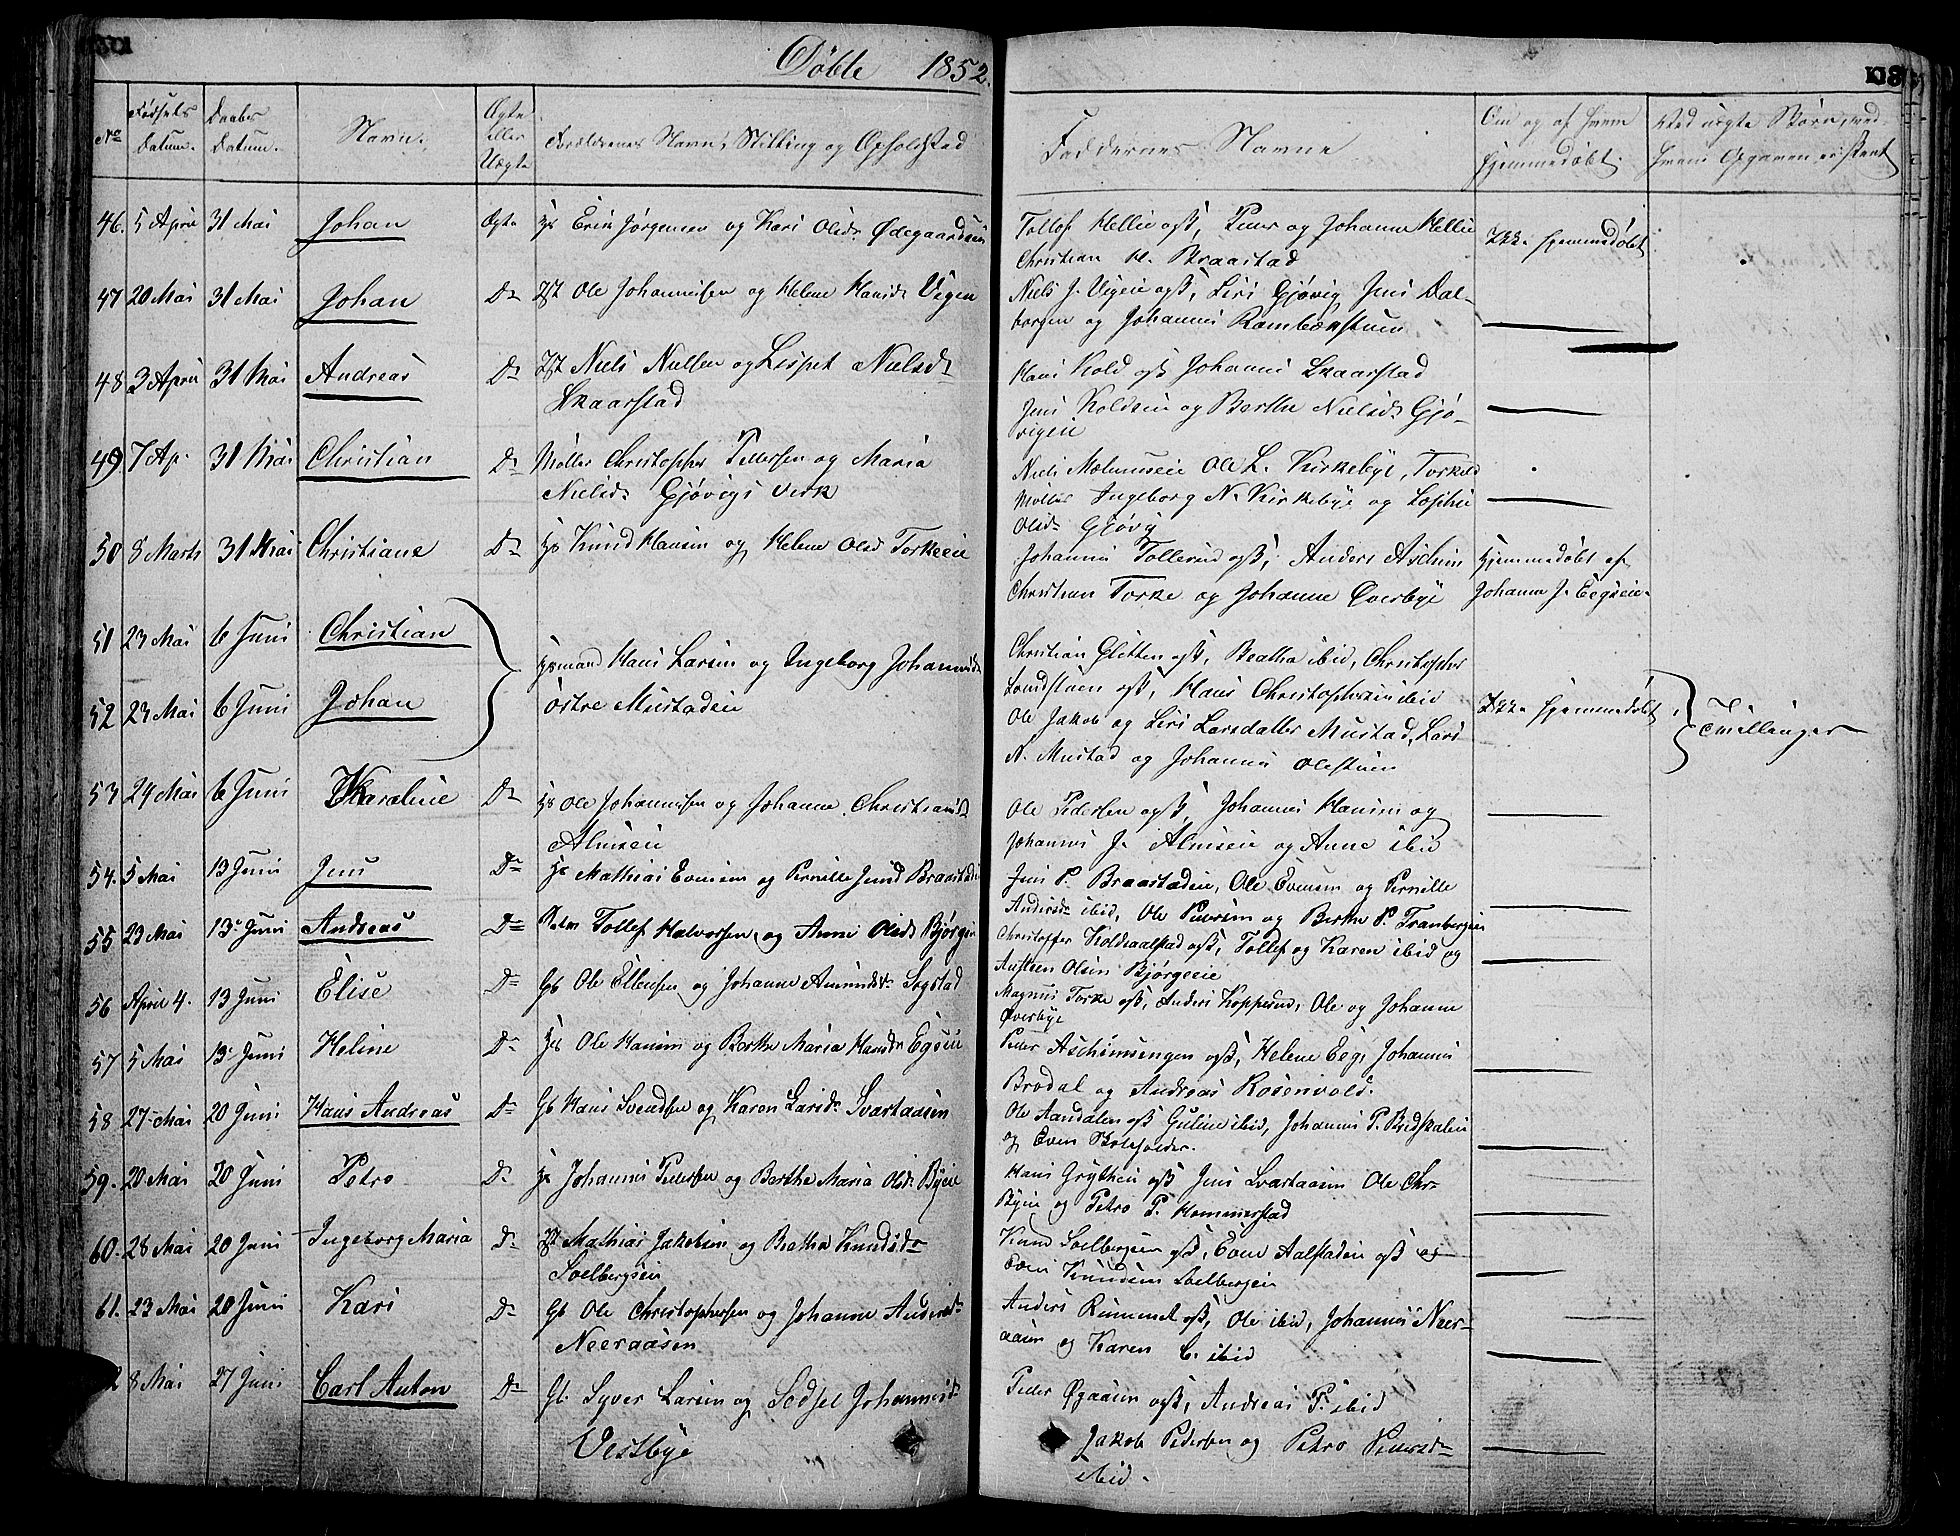 Döbte 1852.
No
Fødsels Datum.
Daabs Datum.
Navn.
Ægte eller Uægte
Forældrenes Navn, Stilling og Opholdstad
Faddernes Navne
Om og af hvem hjemmedøbt.
Ved uægte Børn, ved
46. 5 April 31 Mai Johan Ægte Hs Erik Jørgensen og Kari Olsdr Ødegaardseie
Tollef Hellie oss, Peder og Johanne Hellie
Christian H. Braastad
Ikke hjemmedøbt
47 20 Mai 31 Mai Johan Do Ole Johannesen og Helene Hansdr Vegen
Niels J. Vegeie oss, Siri Gjøvig Jens Dal-
borgen og Johannes Rambækstuen
48 3 April 31 Mai Andreas Do Niels Nielsen og Lispet Nielsdr
Skaarstad
Hans Kold oss Johannes Skaarstad
Jens Koldseie og Berthe Nielsdr Gjø-
vigeie
49 7 Ap. 31 Mai Christian Do Møller Christopher Pettersen og Maria
Nielsdr Gjøvigs Verk
Niels Mælumseie Ole L. Kirkebye, Torkild
Møller Ingeborg N. Kirkebye og Sophie
Olsdr Gjøvig
50 8 Marts 31 Mai Christiane Do Hs Knud Hansen og Helene Olsd Torkeeie
Johannes Tollerud oss, Anders Aschim
Christian Torke og Johanne Øverbye
Hjemmedøbt af
Johanne J. Eegseie.
51 23 Mai 6 Juni Christian
52 23 Mai 6 Juni Johan
Hsmand Hans Larsen og Ingeborg Johannesdr
østre Mustadeie
Christian Glitten oss, Beatha ibid, Christopher
Lundstuen oss, Hans Christophersen ibid
Ole Jakob og Siri Larsdatter Mustad, Lars
A. Mustad og Johannes Olestuen
Ikke hjemmedøbt
Tvillinger
53 24 Mai 6 Juni Karoline Do Hs Ole Johannesen og Johanne Christiansdr
Almseie
Ole Pedersen oss, Johannes Hansen og
Johannes J. Almseie og Anne ibid
54. 5 Mai 13 Juni Jens Do Hs Mathias Evensen og Pernille Jensd Braastadeie
Jens P. Braastadeie, Ole Evensen og Pernille
Andersdr ibid, Ole Peersen og Berthe P. Tranbergeie
55 23 Mai 13 Juni Andreas Do Tollef Halvorsen og Anne Olsdr Bjørgeie
Christoffer Koldraalstad oss, Tollef og Karen ibid og
Austeen Olsen Bjørgeeie
56 April 4. 13 Juni Elise Do Gb Ole Ellensen og Johanne Amundsdr Sogstad
Magnus Torke oss, Anders Kopperud, Ole og Johanne
Øverbye
57 5 Mai 13 Juni Heline Do Hs Ole Hansen og Berthe Maria Hansdr Egseie
Peder Aschimsengen oss, Helene Eeg, Johannes
Brødal og Andreas Rosenvold.
58 27 Mai 20 Juni Hans Andreas Do Gb Hans Svendsen og Karen Larsdr Svartaasen
Ole Aandalen oss Guline ibid, Johannes P. Bredskaleie
og Even
59. 20 Mai 20 Juni Petro Do Hs Johannes Pettersen og Berthe Maria Olsdr Byeie
Hans Grytheie oss Jens Svartaasen Ole Chr.
Byeie og Petro P. Hammerstad
60. 28 Mai 20 Juni Ingeborg Maria Do Mathias Jakobsen og Beatha Knudsdr
Soelbergseie
Knud Soelbergeie oss, Even Aalstadeie oss og
Even Knudsen Soelbergeie
61. 23 Mai 20 Juni Kari Do Gb Ole Christophersen og Johanne Andersdr
Neeraasen
Anders Rummet oss, Ole ibid, Johannes Neer-
aasen og Karen C. ibid
8 Mai 27 Juni Carl Anton Do Gb. Syver Larsen og Sedsel Johannesdr
Vestbye
Peder Øgaasen oss, Andreas P. ibid
Jakob Pedersen og Petro Peersdr
ibid.